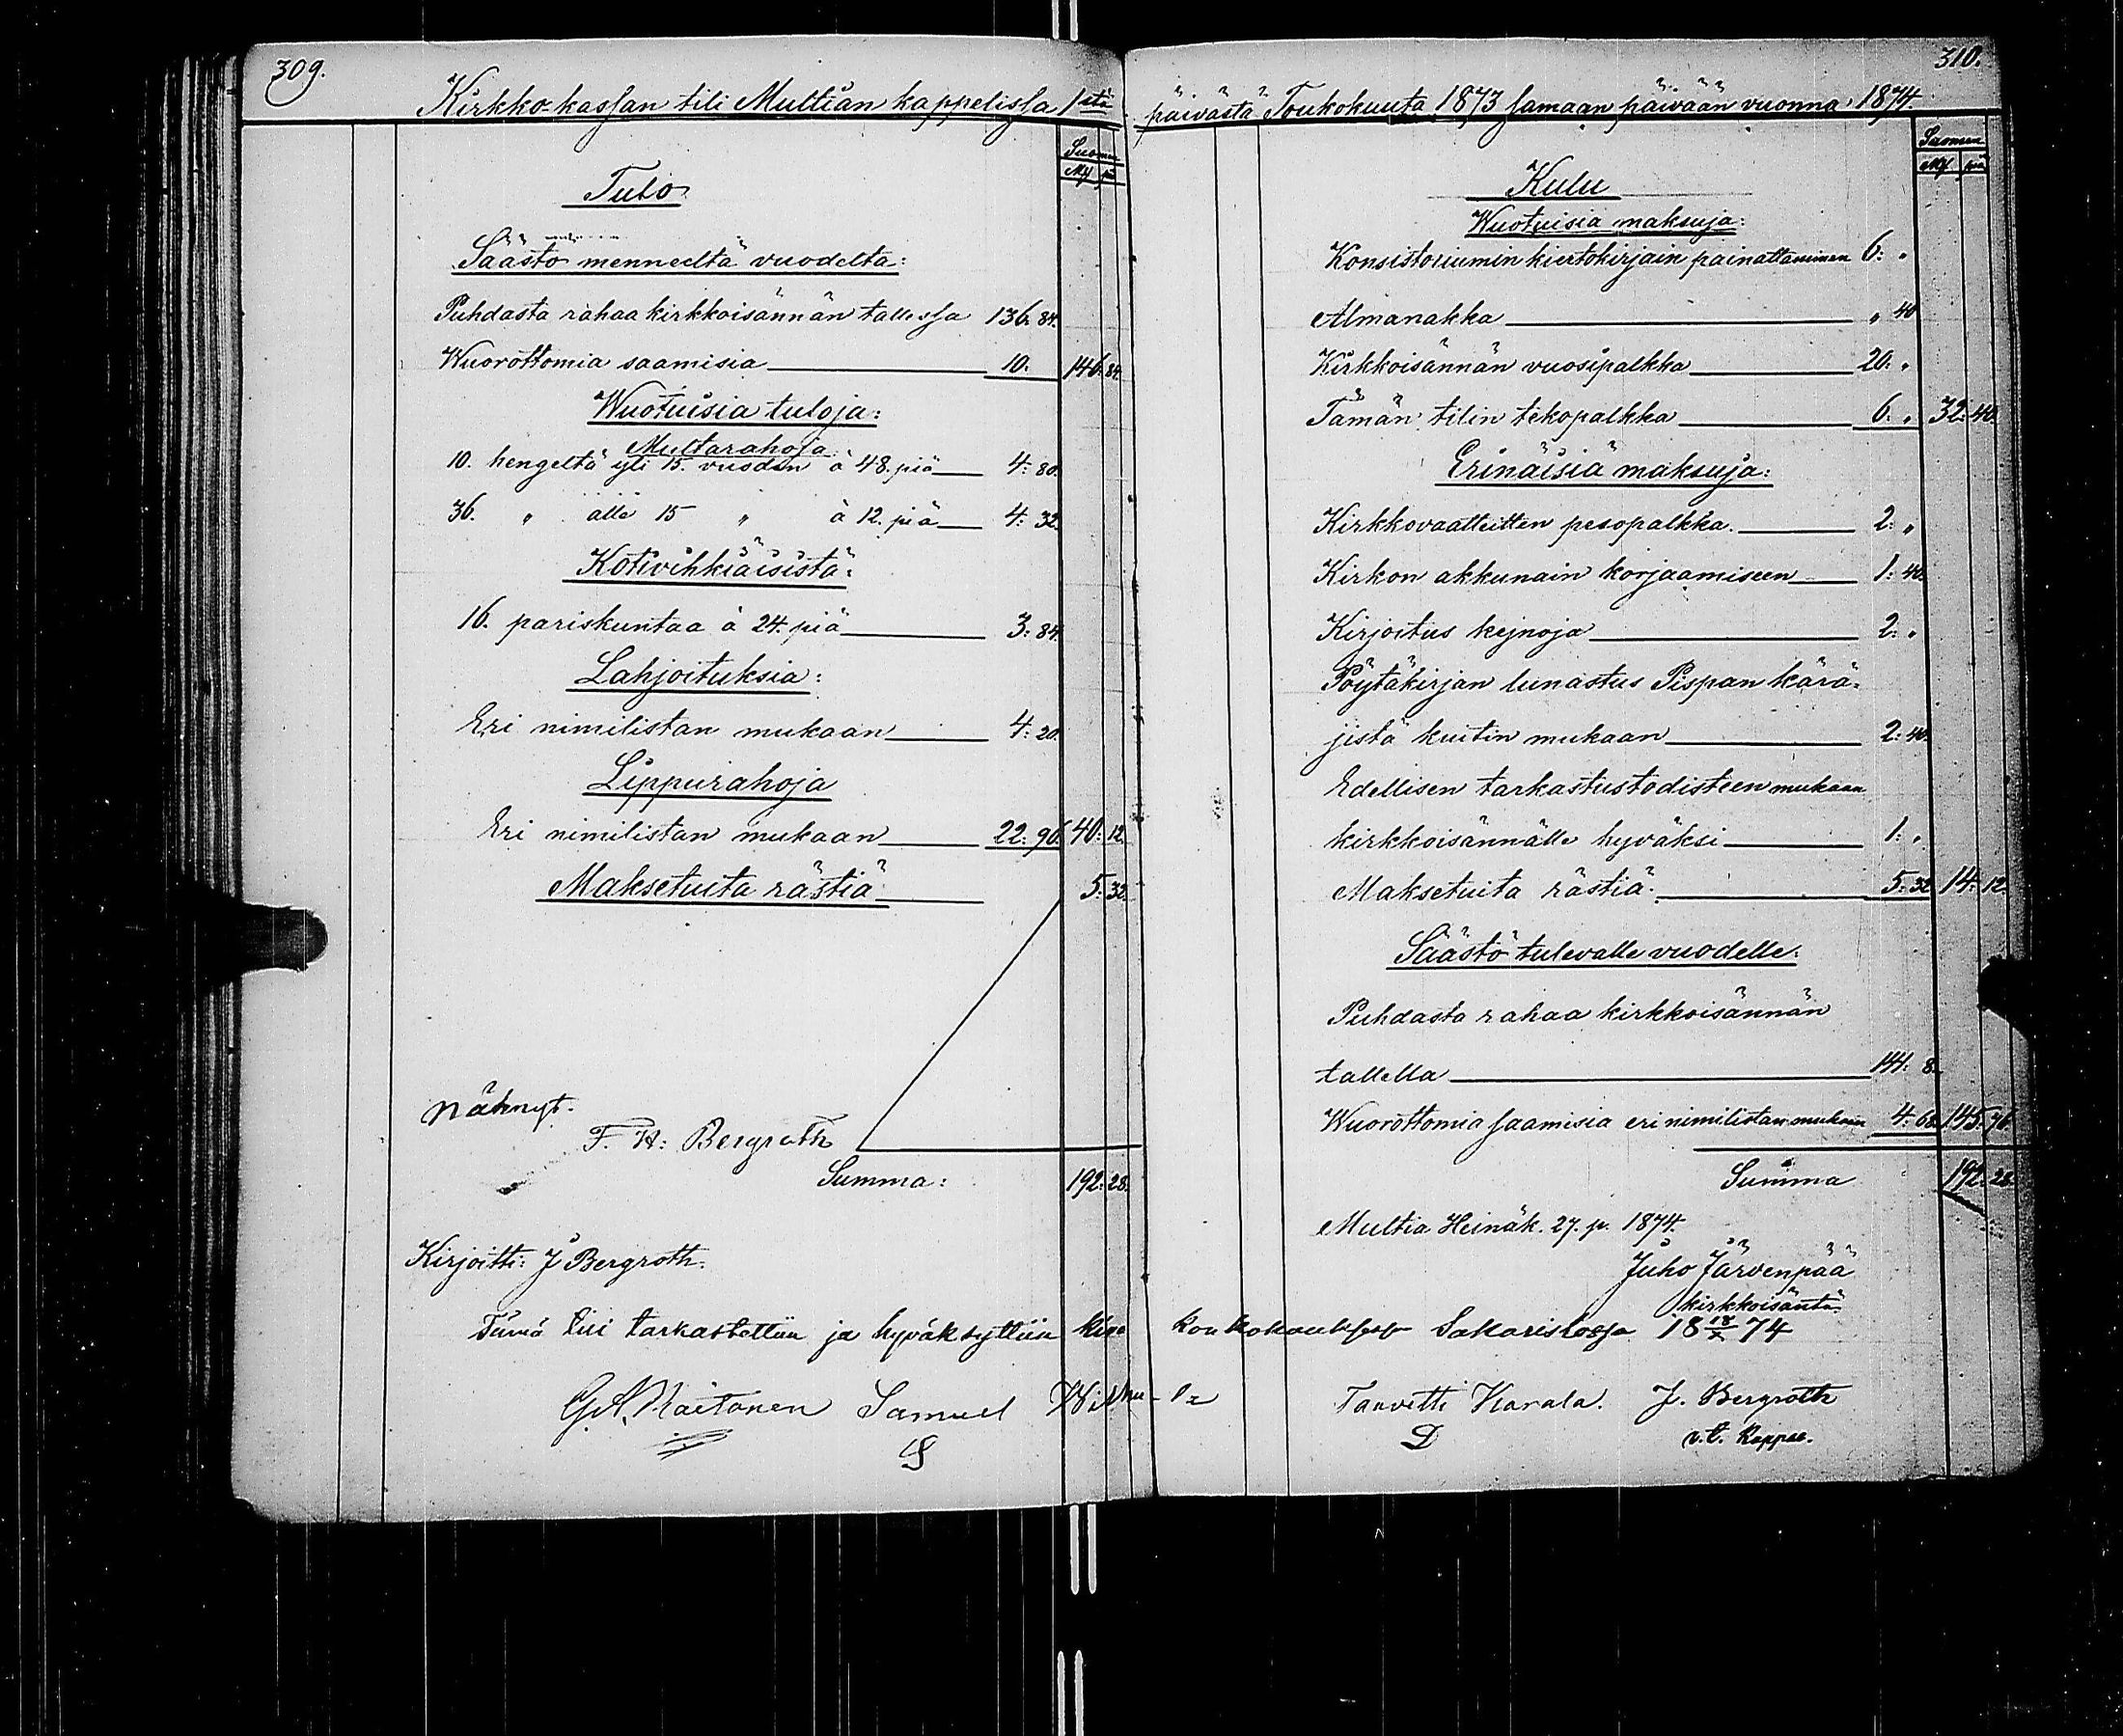 309.
Kirkko-kassan tili Multian kappelissa 1stä
Suomen
Mk pä
Tulo
Säästö menneeltä vuodelta:
Puhdasta rahaa kirkkoisännän tallessa 136. 84.
Wuorottomia saamisia 10. 146. 84.
Wuotuisia tuloja:
Multarahoja
10. hengeltä yli 15. vuoden à 48. piä 4: 80.
36. " alle 15 " à 12. piä 4: 32.
Kotivihkiäisistä:
16. pariskuntaa à 24. piä 3: 84.
Lahjoituksia:
Eri nimilistan mukaan 4: 20.
Lippurahoja
Eri nimilistan mukaan 22: 96. 40: 12.
Maksetuita rästiä 5: 32.
Nähnyt.
F. H: Bergroth
Summa: 192: 28.
Kirjoitti: J Bergroth.
Tämä tili tarkastettiin ja hyväksyttiin
G. A. Raitanen Samuel
S
310.
päivästä Toukokuuta 1873 samaan päivään vuonna 1874.
Suomen
Mk piä
Kulu
Wuotuisia maksuja:
Konsistoriumin kiertokirjain painattaminen 6: "
Almanakka " 40
Kirkkoisännän vuosipalkka 20: "
Tämän tilin tekopalkka 6. " 32: 40.
Erinäisiä maksuja:
Kirkkovaatteitten pesopalkka. 2: "
Kirkon akkunain korjaamiseen 1: 40.
Kirjoitus kejnoja 2: "
Pöytäkirjan lunastus Pispan kärä-
jistä kuitin mukaan 2: 40.
Edellisen tarkastustodisteen mukaan
kirkkoisännälle hyväksi 1: "
Maksetuita rästiä. 5: 32 14: 12.
Säästö tulevalle vuodelle.
Puhdasta rahaa kirkkoisännän
tallella 141: 8.
Wuorottomia saamisia eri nimilistan mukaan 4: 68. 145: 76.
Summa 192: 28.
Multia Heinäk. 27. p. 1874.
Juho Järvenpää
kirkkoisäntä.
Sakaristossa 18 18/X 74
Taavetti Harala. J. Bergroth
D v.t. Kappal.